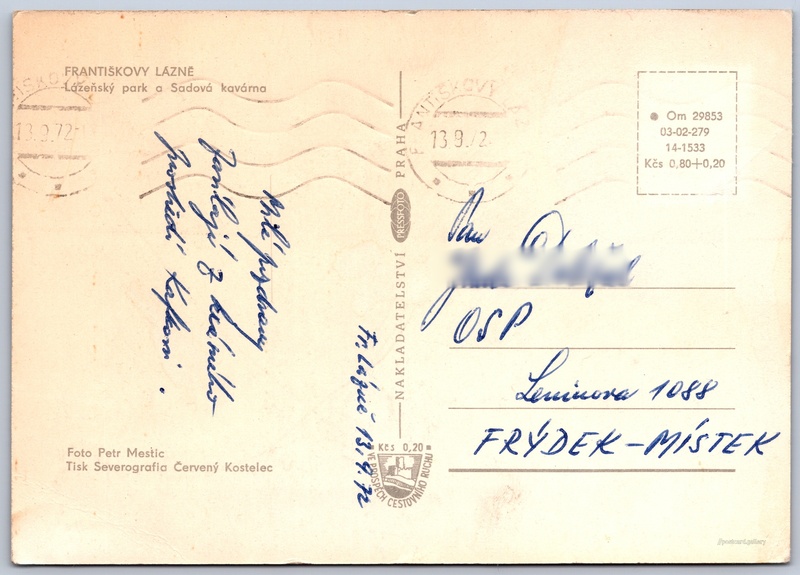 FRANTIŠKOVY LÁZNĚ
Lázeňský park a Sadová kavárna
13.9.72
FRANTIŠKOVY
13.9.72
Om 29853
03-02-279
14-1533
Kčs 0,80+0,20
NAKLADATELSTVÍ PRESSFOTO PRAHA
Milé pozdravy
zasílají z krásného
prostředí
Fr. Lázně 13.9.72
Pan
OSP
Leninova 1088
FRÝDEK-MÍSTEK
Kčs 0,20
VE PROSPĚCH CESTOVNÍHO RUCHU
Foto Petr Mestic
Tisk Severografia Červený Kostelec